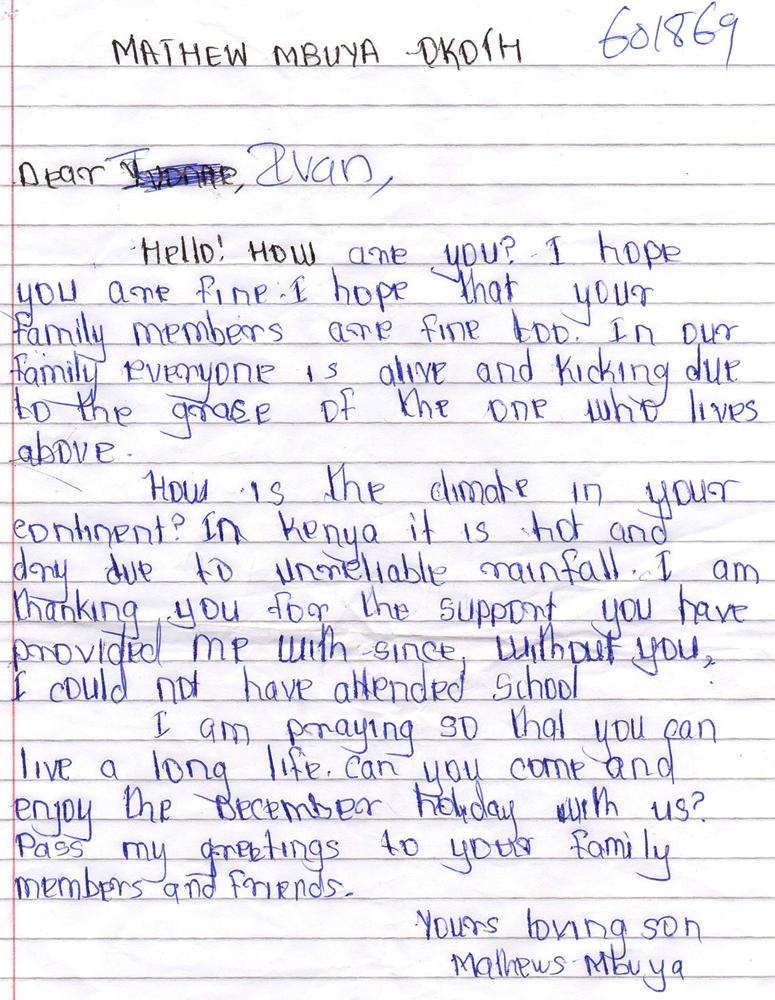 MATHEW MBUYA OKOTH 601869
Dear Ivan,
Hello! How are you? I hope
you are fine. I hope that your
family members are fine too. In our
family everyone is alive and kicking due
to the grase of the one who lives
above.
How is the climate in your
continent? In Kenya it is hot and
dry due to unreliable rainfall. I am
thanking you for the support you have
provided me with since, without you,
I could not have attended school
I am praying so that you can
live a long life. Can you come and
enjoy the December holiday with us?
Pass my greetings to your family
members and friends.
Yours loving son
Mathews Mbuya